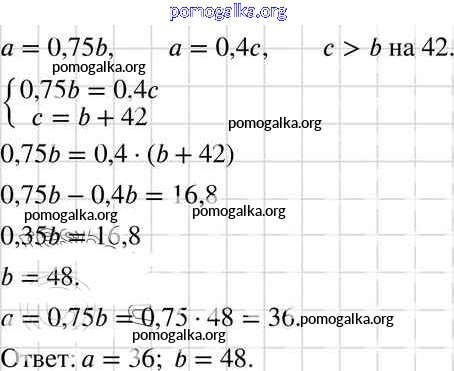 pomogalka.org
a = 0,75b, a = 0,4c, c > b на 42.
pomogalka.org
{ 0,75b = 0.4c
c = b + 42
pomogalka.org
0,75b = 0,4 · (b + 42)
0,75b − 0,4b = 16,8
pomogalka.org pomogalka.org
0,35b = 16,8
b = 48.
a = 0,75b = 0,75 · 48 = 36. pomogalka.org
pomogalka.org
Ответ: a = 36; b = 48.